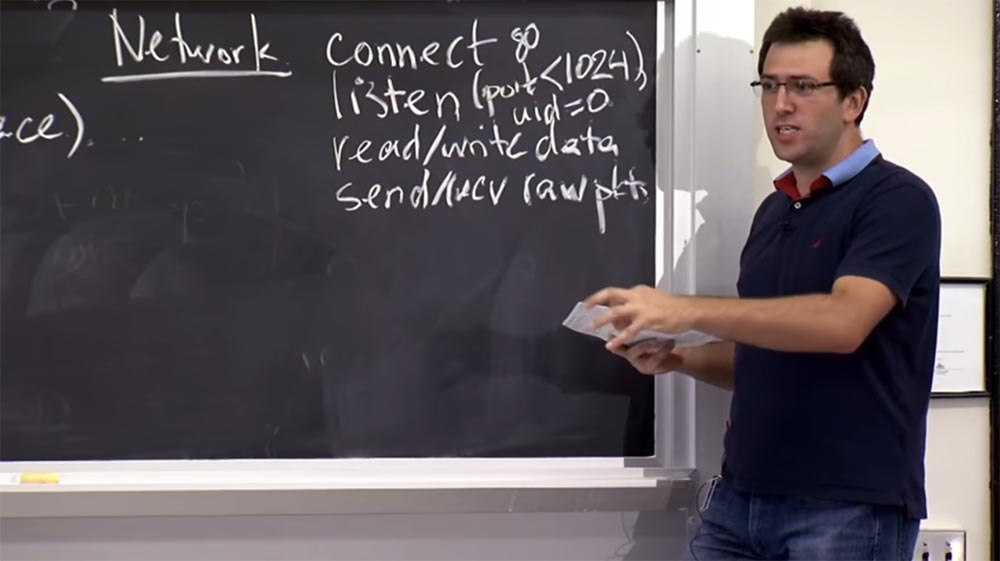 Network
connect 80
listen (port <1024)
uid=0
read/write data
send/recv raw pkts
ace)...